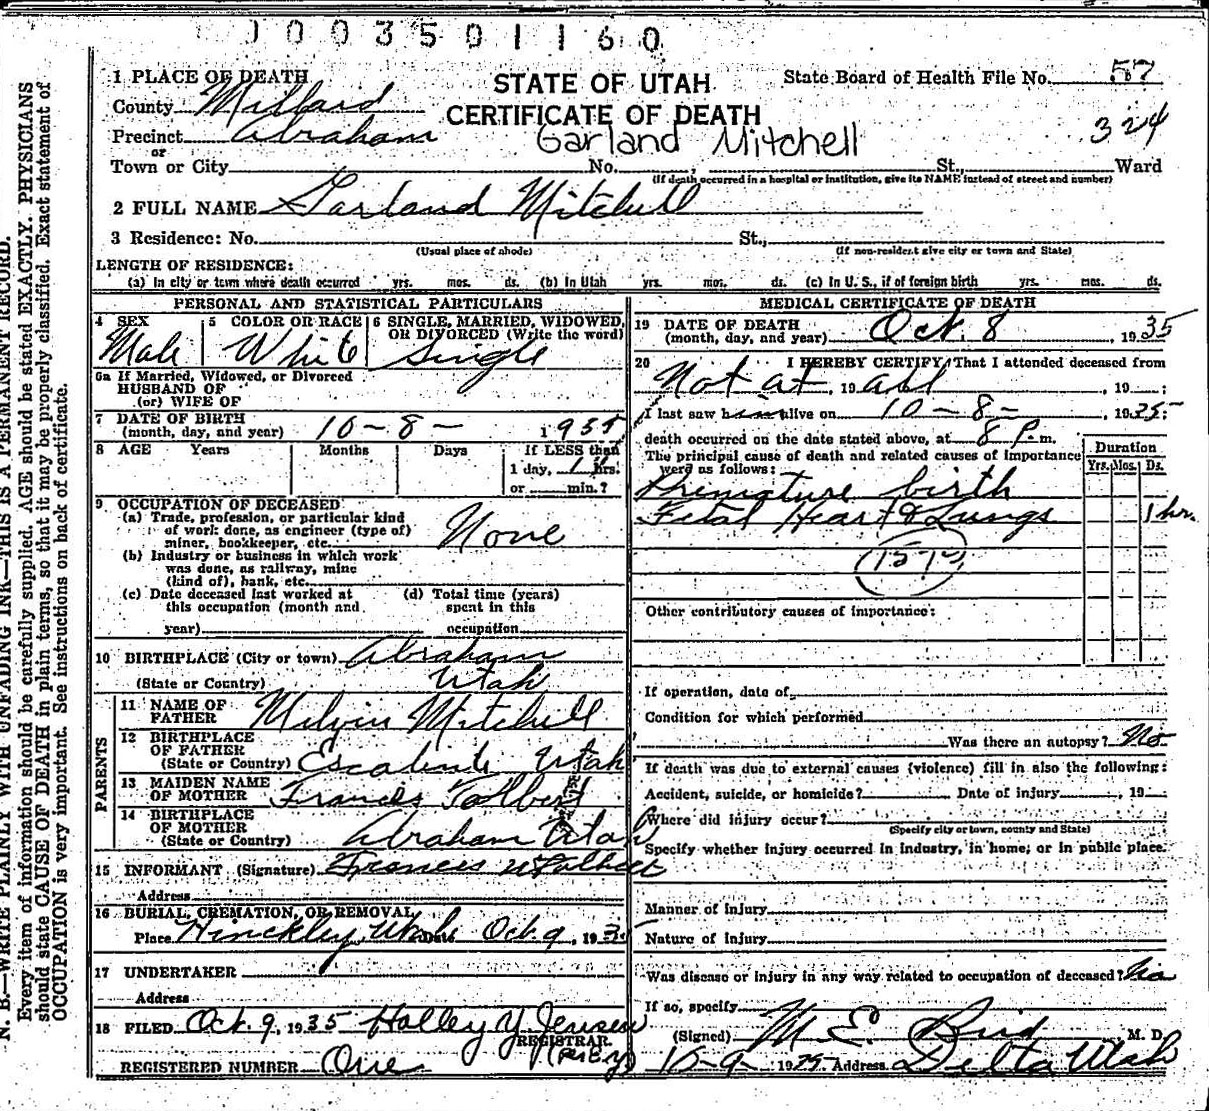 1003501160
1 PLACE OF DEATH
STATE OF UTAH
State Board of Health File No. 57
County Millard
CERTIFICATE OF DEATH
324
Precinct Abraham
Garland Mitchell
or
Town or City No. , St., Ward
(If death occurred in a hospital or institution, give its NAME instead of street and number)
2 FULL NAME Garland Mitchell
3 Residence: No. St.,
(Usual place of abode) (If non-resident give city or town and State)
LENGTH OF RESIDENCE:
(a) In city or town where death occurred yrs. mos. ds. (b) In Utah yrs. mos. ds. (c) In U. S., if of foreign birth yrs. mos. ds.
PERSONAL AND STATISTICAL PARTICULARS
4 SEX Male
5 COLOR OR RACE White
6 SINGLE, MARRIED, WIDOWED,
OR DIVORCED (Write the word)
Single
6a If Married, Widowed, or Divorced
HUSBAND OF
(or) WIFE OF
7 DATE OF BIRTH
(month, day, and year) 10-8- 1935
8 AGE Years Months Days If LESS than
1 day, 1 hrs.
or min.?
9 OCCUPATION OF DECEASED
(a) Trade, profession, or particular kind
of work done, as engineer (type of)
miner, bookkeeper, etc. None
(b) Industry or business in which work
was done, as railway, mine
(kind of), bank, etc.
(c) Date deceased last worked at
this occupation (month and
year)
(d) Total time (years)
spent in this
occupation
10 BIRTHPLACE (City or town) Abraham
(State or Country) Utah
PARENTS
11 NAME OF
FATHER Melvin Mitchell
12 BIRTHPLACE
OF FATHER
(State or Country) Escalante Utah
13 MAIDEN NAME
OF MOTHER Francis Tolbert
14 BIRTHPLACE
OF MOTHER
(State or Country) Abraham Utah
15 INFORMANT (Signature) Frances
Address
16 BURIAL, CREMATION, OR REMOVAL
Place Hinckley, Utah Date Oct. 9, 193
17 UNDERTAKER
Address
18 FILED Oct. 9, 1935 Holley Y Jensen
REGISTRAR.
REGISTERED NUMBER One
MEDICAL CERTIFICATE OF DEATH
19 DATE OF DEATH
(month, day, and year) Oct. 8, 1935
20 I HEREBY CERTIFY, That I attended deceased from
Not at, 19 all, 19 ;
I last saw h alive on 10-8-, 1935;
death occurred on the date stated above, at 8 P. m.
The principal cause of death and related causes of importance
were as follows:
Duration
Yrs. Mos. Ds.
Premature birth
Fetal Heart & Lungs 1 hr.
Other contributory causes of importance:
If operation, date of
Condition for which performed
Was there an autopsy? No
If death was due to external causes (violence) fill in also the following:
Accident, suicide, or homicide? Date of injury , 19
Where did injury occur?
(Specify city or town, county and State)
Specify whether injury occurred in industry, in home, or in public place.
Manner of injury
Nature of injury
Was disease or injury in any way related to occupation of deceased? No
If so, specify
(Signed) M. E. Bird M. D.
10-9- 1935 Address Delta Utah
N. B.—WRITE PLAINLY WITH UNFADING INK—THIS IS A PERMANENT RECORD.
Every item of information should be carefully supplied. AGE should be stated EXACTLY. PHYSICIANS
should state CAUSE OF DEATH in plain terms, so that it may be properly classified. Exact statement of
OCCUPATION is very important. See instructions on back of certificate.